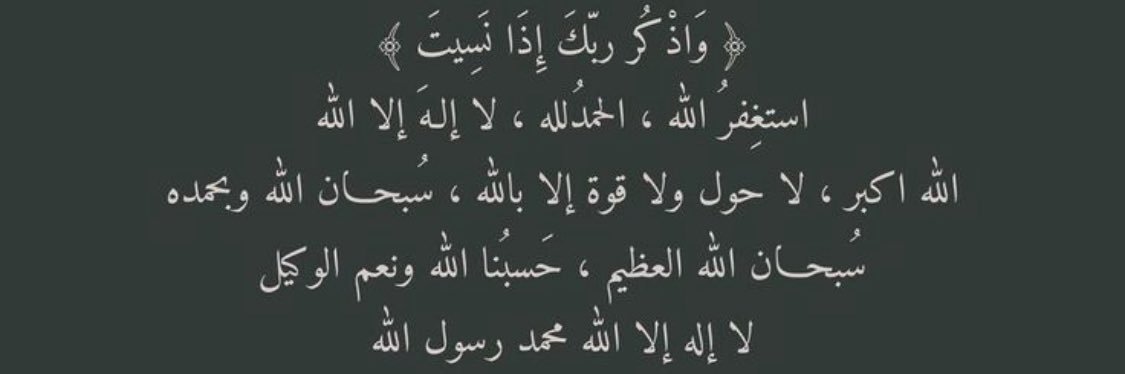 ﴿ وَاذْكُر ربّكَ إِذَا نَسِيتَ ﴾
استغِفرُ الله ، الحمدُلله ، لا إلـهَ إلا الله
الله اكبر ، لا حول ولا قوة إلا بالله ، سُبحـان الله وبحمده
سُبحـان الله العظيم ، حَسبُنا الله ونعم الوكيل
لا إله إلا الله محمد رسول الله